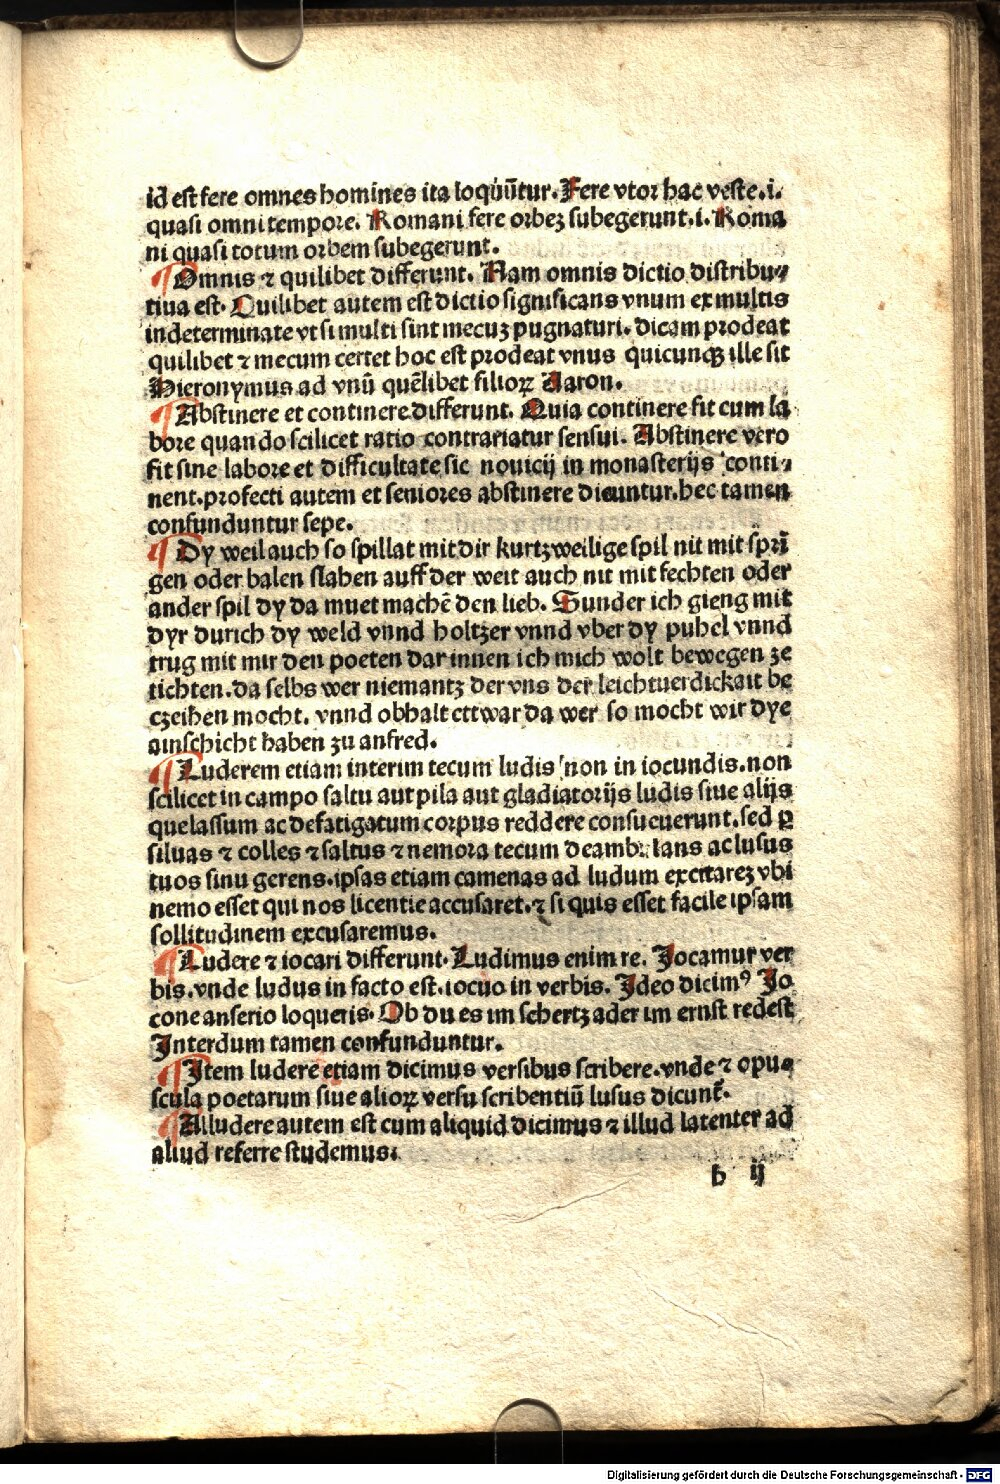 id est fere omnes homines ita loquũtur. Fere vtor hac veste .i.
quasi omni tempore. Romani fere orbeʒ subegerunt .i. Roma
ni quasi totum orbem subegerunt.
¶ Omnis ⁊ quilibet differunt. Nam omnis dictio distribu⸗
tiua est. Quilibet autem est dictio significans vnum ex multis
indeterminate vt si multi sint mecuʒ pugnaturi. dicam prodeat
quilibet ⁊ mecum certet hoc est prodeat vnus quicunqꝫ ille sit
Hieronymus ad vnũ quẽlibet filioꝝ Aaron.
¶ Abstinere et continere differunt. Quia continere fit cum la
bore quando scilicet ratio contrariatur sensui. Abstinere vero
fit sine labore et difficultate sic nouicij in monasterijs conti⸗
nent. profecti autem et seniores abstinere dicuntur. hec tamen
confunduntur sepe.
¶ Dy weil auch so spillat mit dir kurtzweilige spil nit mit sprĩ
gen oder balen slahen auff der weit auch nit mit fechten oder
ander spil dy da muet machẽ den lieb. Sunder ich gieng mit
dyr durich dy weld vnnd holtzer vnnd vber dy puhel vnnd
trug mit mir den poeten dar innen ich mich wolt bewegen ze
tichten. da selbs wer niemantz der vns der leichtuerdickait be
czeihen mocht. vnnd obhalt ettwar da wer so mocht wir dye
ainschicht haben zu anfred.
¶ Luderem etiam interim tecum ludis non in iocundis. non
scilicet in campo saltu aut pila aut gladiatorijs ludis siue alijs
que lassum ac defatigatum corpus reddere consueuerunt. sed ꝑ
siluas ⁊ colles ⁊ saltus ⁊ nemora tecum deambulans ac lusus
tuos sinu gerens. ipsas etiam camenas ad ludum excitareʒ vbi
nemo esset qui nos licentie accusaret. ⁊ si quis esset facile ipsam
sollitudinem excusaremus.
¶ Ludere ⁊ iocari differunt. Ludimus enim re. Jocamur ver
bis. vnde ludus in facto est. iocuo in verbis. Ideo dicimꝰ Jo
cone an serio loqueris. Ob du es im schertz ader im ernst redest
Interdum tamen confunduntur.
¶ Item ludere etiam dicimus versibus scribere. vnde ⁊ opu⸗
scula poetarum siue alioꝝ versu scribentiũ lusus dicunt̃.
¶ Alludere autem est cum aliquid dicimus ⁊ illud latenter ad
aliud referre studemus.
b ij
Digitalisierung gefördert durch die Deutsche Forschungsgemeinschaft - DFG